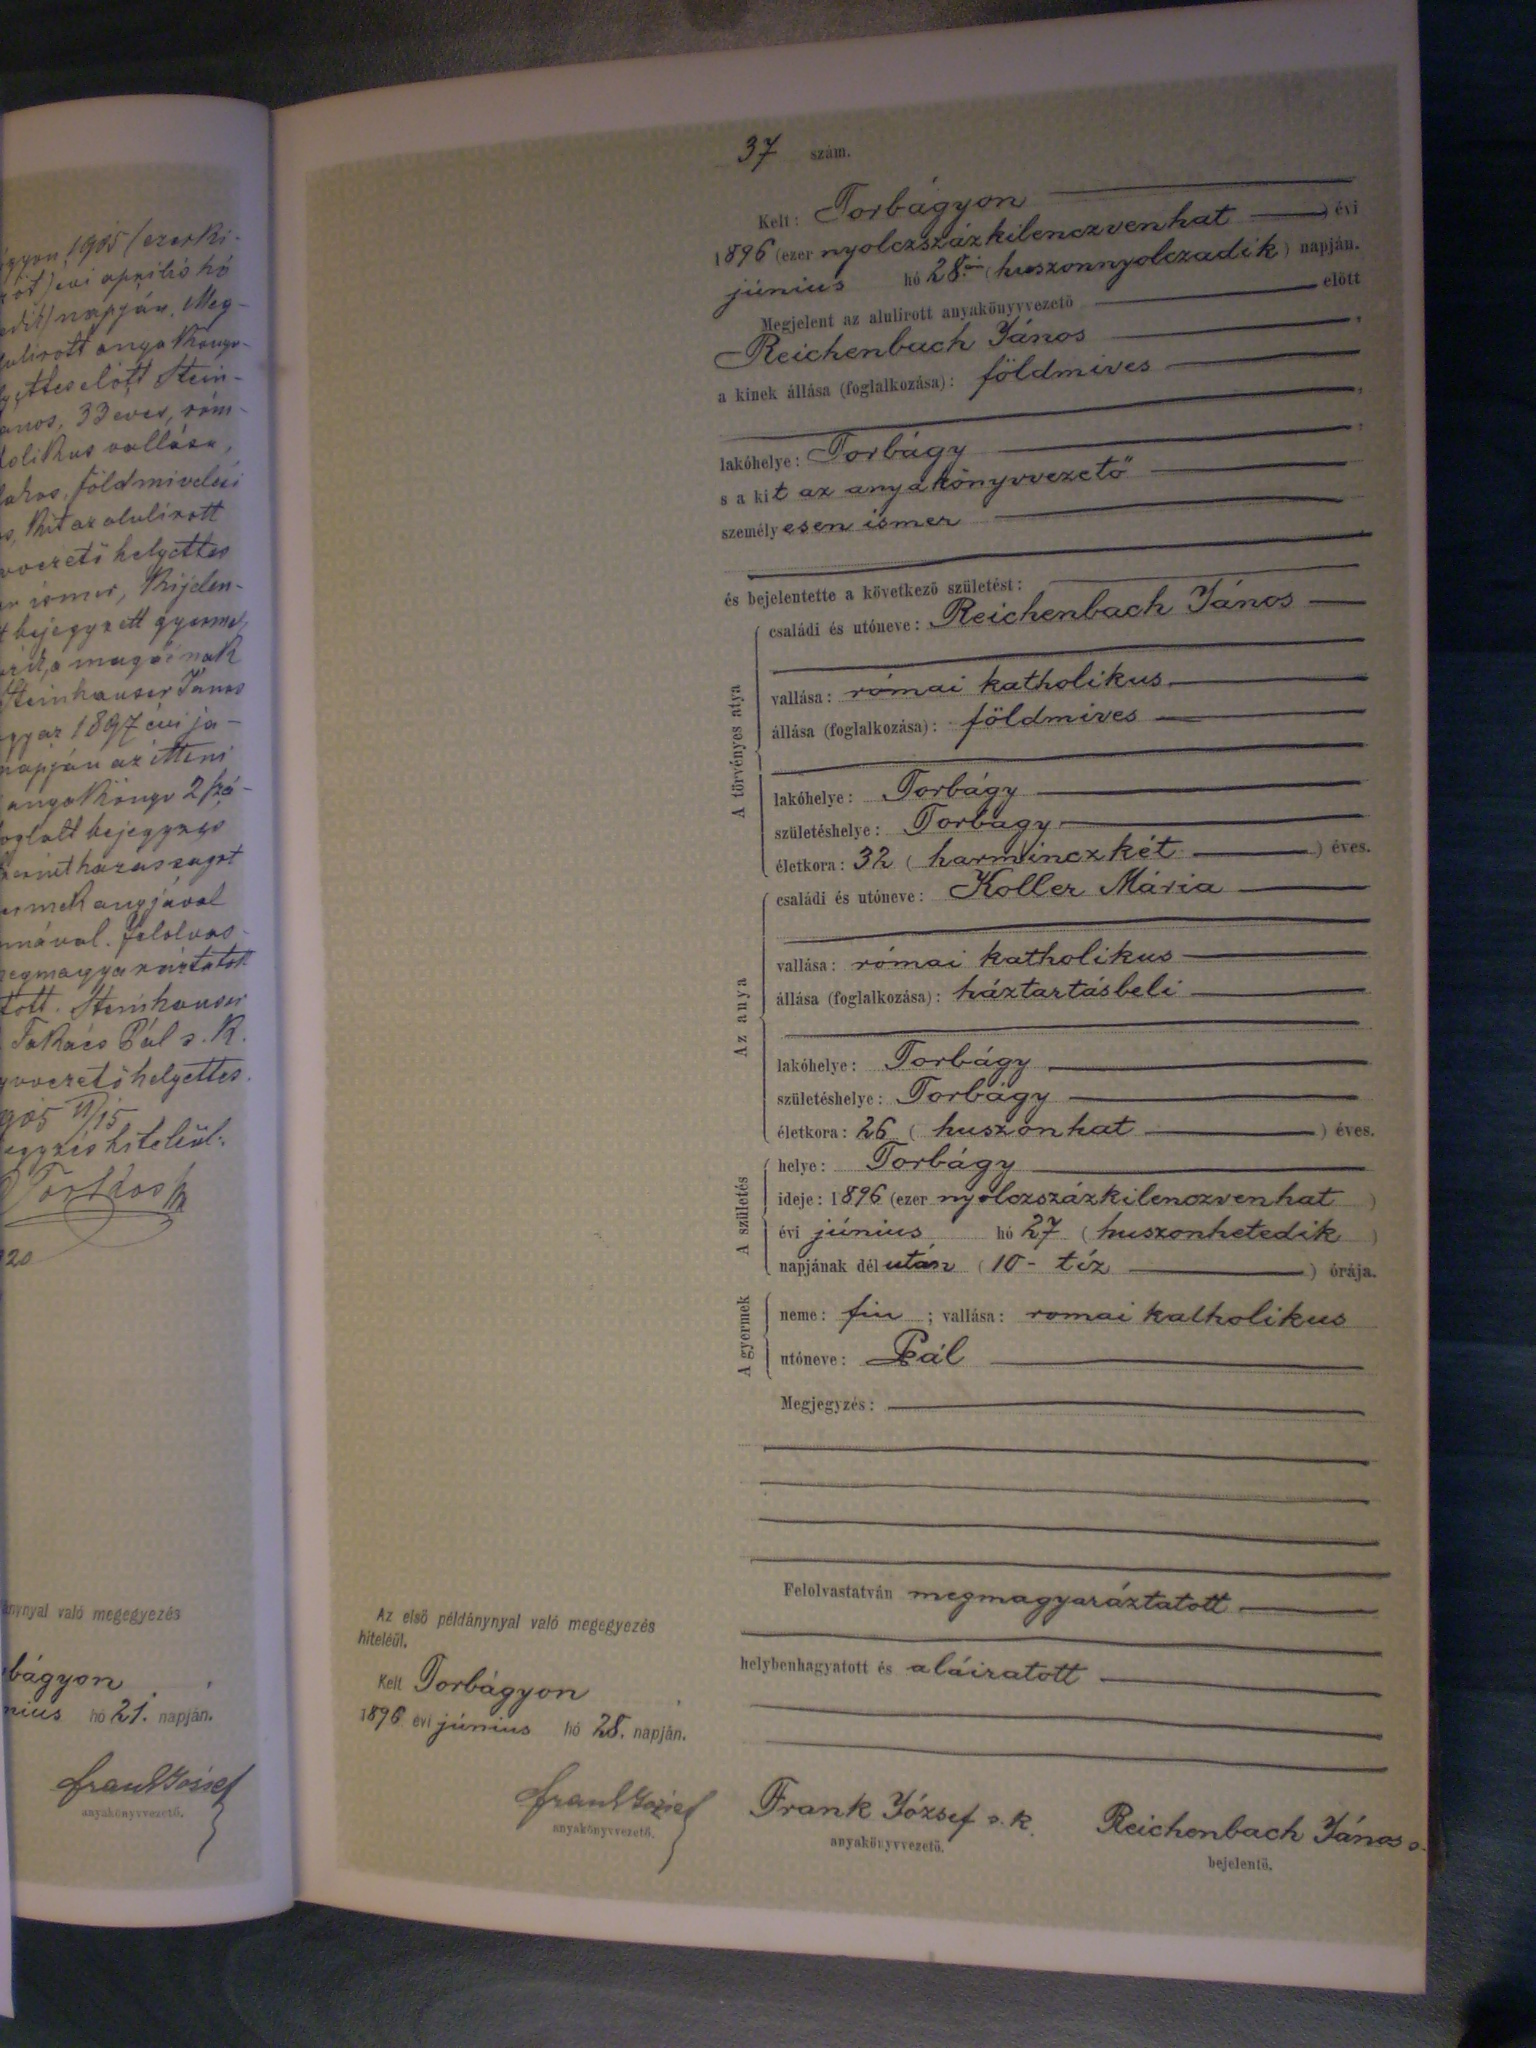 gyon, 1905 (ezerki-
öt) évi április hó
napján. Meg-
lulirott anyakönyv-
yettes előtt Stein-
ános, 33 éves, róm-
tolikus vallásu,
lakos, földmivelési
s, kit az alulirott
vvezető helyettes
ismer, kijelen-
t bejegyzett gyerme-
a magáénak
Steinhauser János
gy az 1897 évi ja-
napján az itteni
anyakönyv 2 szá-
foglalt bejegyzés
szerint házasságot
ermek anyjával
nnával. Felolvas-
megmagyaráztatott
tott. Steinhauser
Takács Pál s. k.
yvvezető helyettes.
905 II/15
egyzés hiteléül:
20
ánynyal való megegyezés
bágyon
nius hó 21. napján.
Frank József
anyakönyvvezető.
37 szám.
Kelt: Torbágyon
1896 (ezer nyolczszázkilenczvenhat) évi
június hó 28.án (huszonnyolczadik) napján.
Megjelent az alulirott anyakönyvvezető előtt
Reichenbach János,
a kinek állása (foglalkozása): földmives
lakóhelye: Torbágy,
s a kit az anyakönyvvezető
személyesen ismer
és bejelentette a következő születést:
A törvényes atya
családi és utóneve: Reichenbach János
vallása: római katholikus
állása (foglalkozása): földmives
lakóhelye: Torbágy
születéshelye: Torbágy
életkora: 32 (harminczkét) éves.
Az anya
családi és utóneve: Koller Mária
vallása: római katholikus
állása (foglalkozása): háztartásbeli
lakóhelye: Torbágy
születéshelye: Torbágy
életkora: 26 (huszonhat) éves.
A születés
helye: Torbágy
ideje: 1896 (ezer nyolczszázkilenczvenhat)
évi június hó 27 (huszonhetedik)
napjának délután (10 - tíz) órája.
A gyermek
neme: fiu; vallása: romai katholikus
utóneve: Pál
Megjegyzés:
Felolvastatván megmagyaráztatott
helybenhagyatott és aláiratott
Az első példánynyal való megegyezés
hiteléül.
Kelt Torbágyon
1896 évi június hó 28. napján.
Frank József
anyakönyvvezető.
Frank József s. k.
anyakönyvvezető.
Reichenbach János s.
bejelentő.